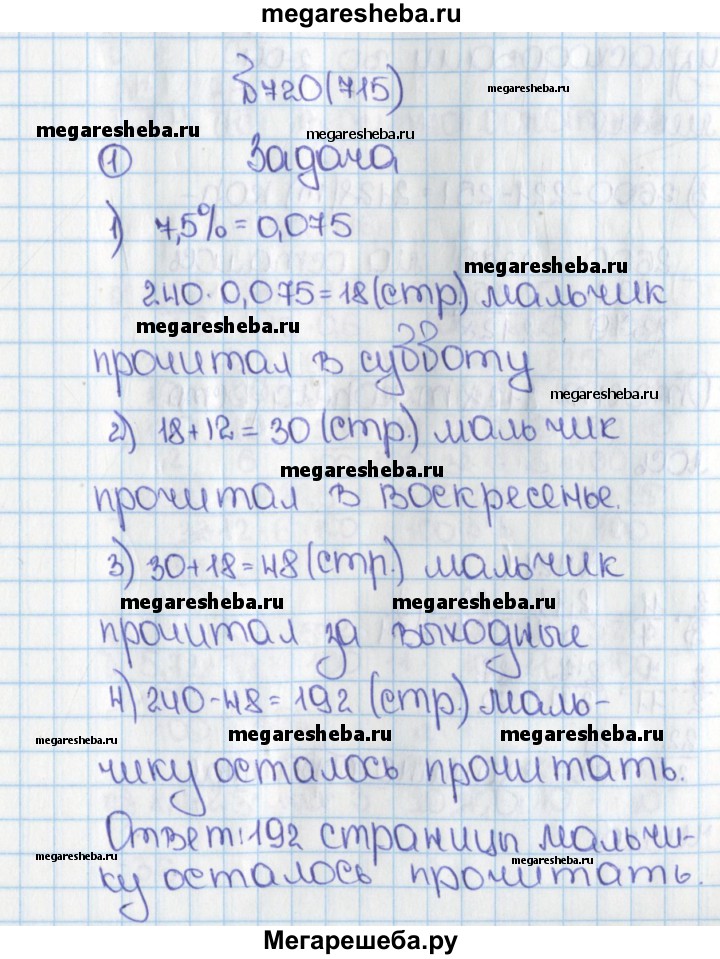 megaresheba.ru
№720(715)
megaresheba.ru
megaresheba.ru
megaresheba.ru
① Задача
1) 7,5% = 0,075
megaresheba.ru
240·0,075=18(стр.) мальчик
megaresheba.ru
прочитал в субботу
megaresheba.ru
2) 18+12=30 (стр.) мальчик
megaresheba.ru
прочитал в воскресенье.
3) 30+18=48(стр.) мальчик
megaresheba.ru megaresheba.ru
прочитал за выходные
4) 240-48=192 (стр.) маль-
megaresheba.ru megaresheba.ru megaresheba.ru
чику осталось прочитать.
Ответ: 192 страницы мальчи-
megaresheba.ru megaresheba.ru
ку осталось прочитать.
Мегарешеба.ру